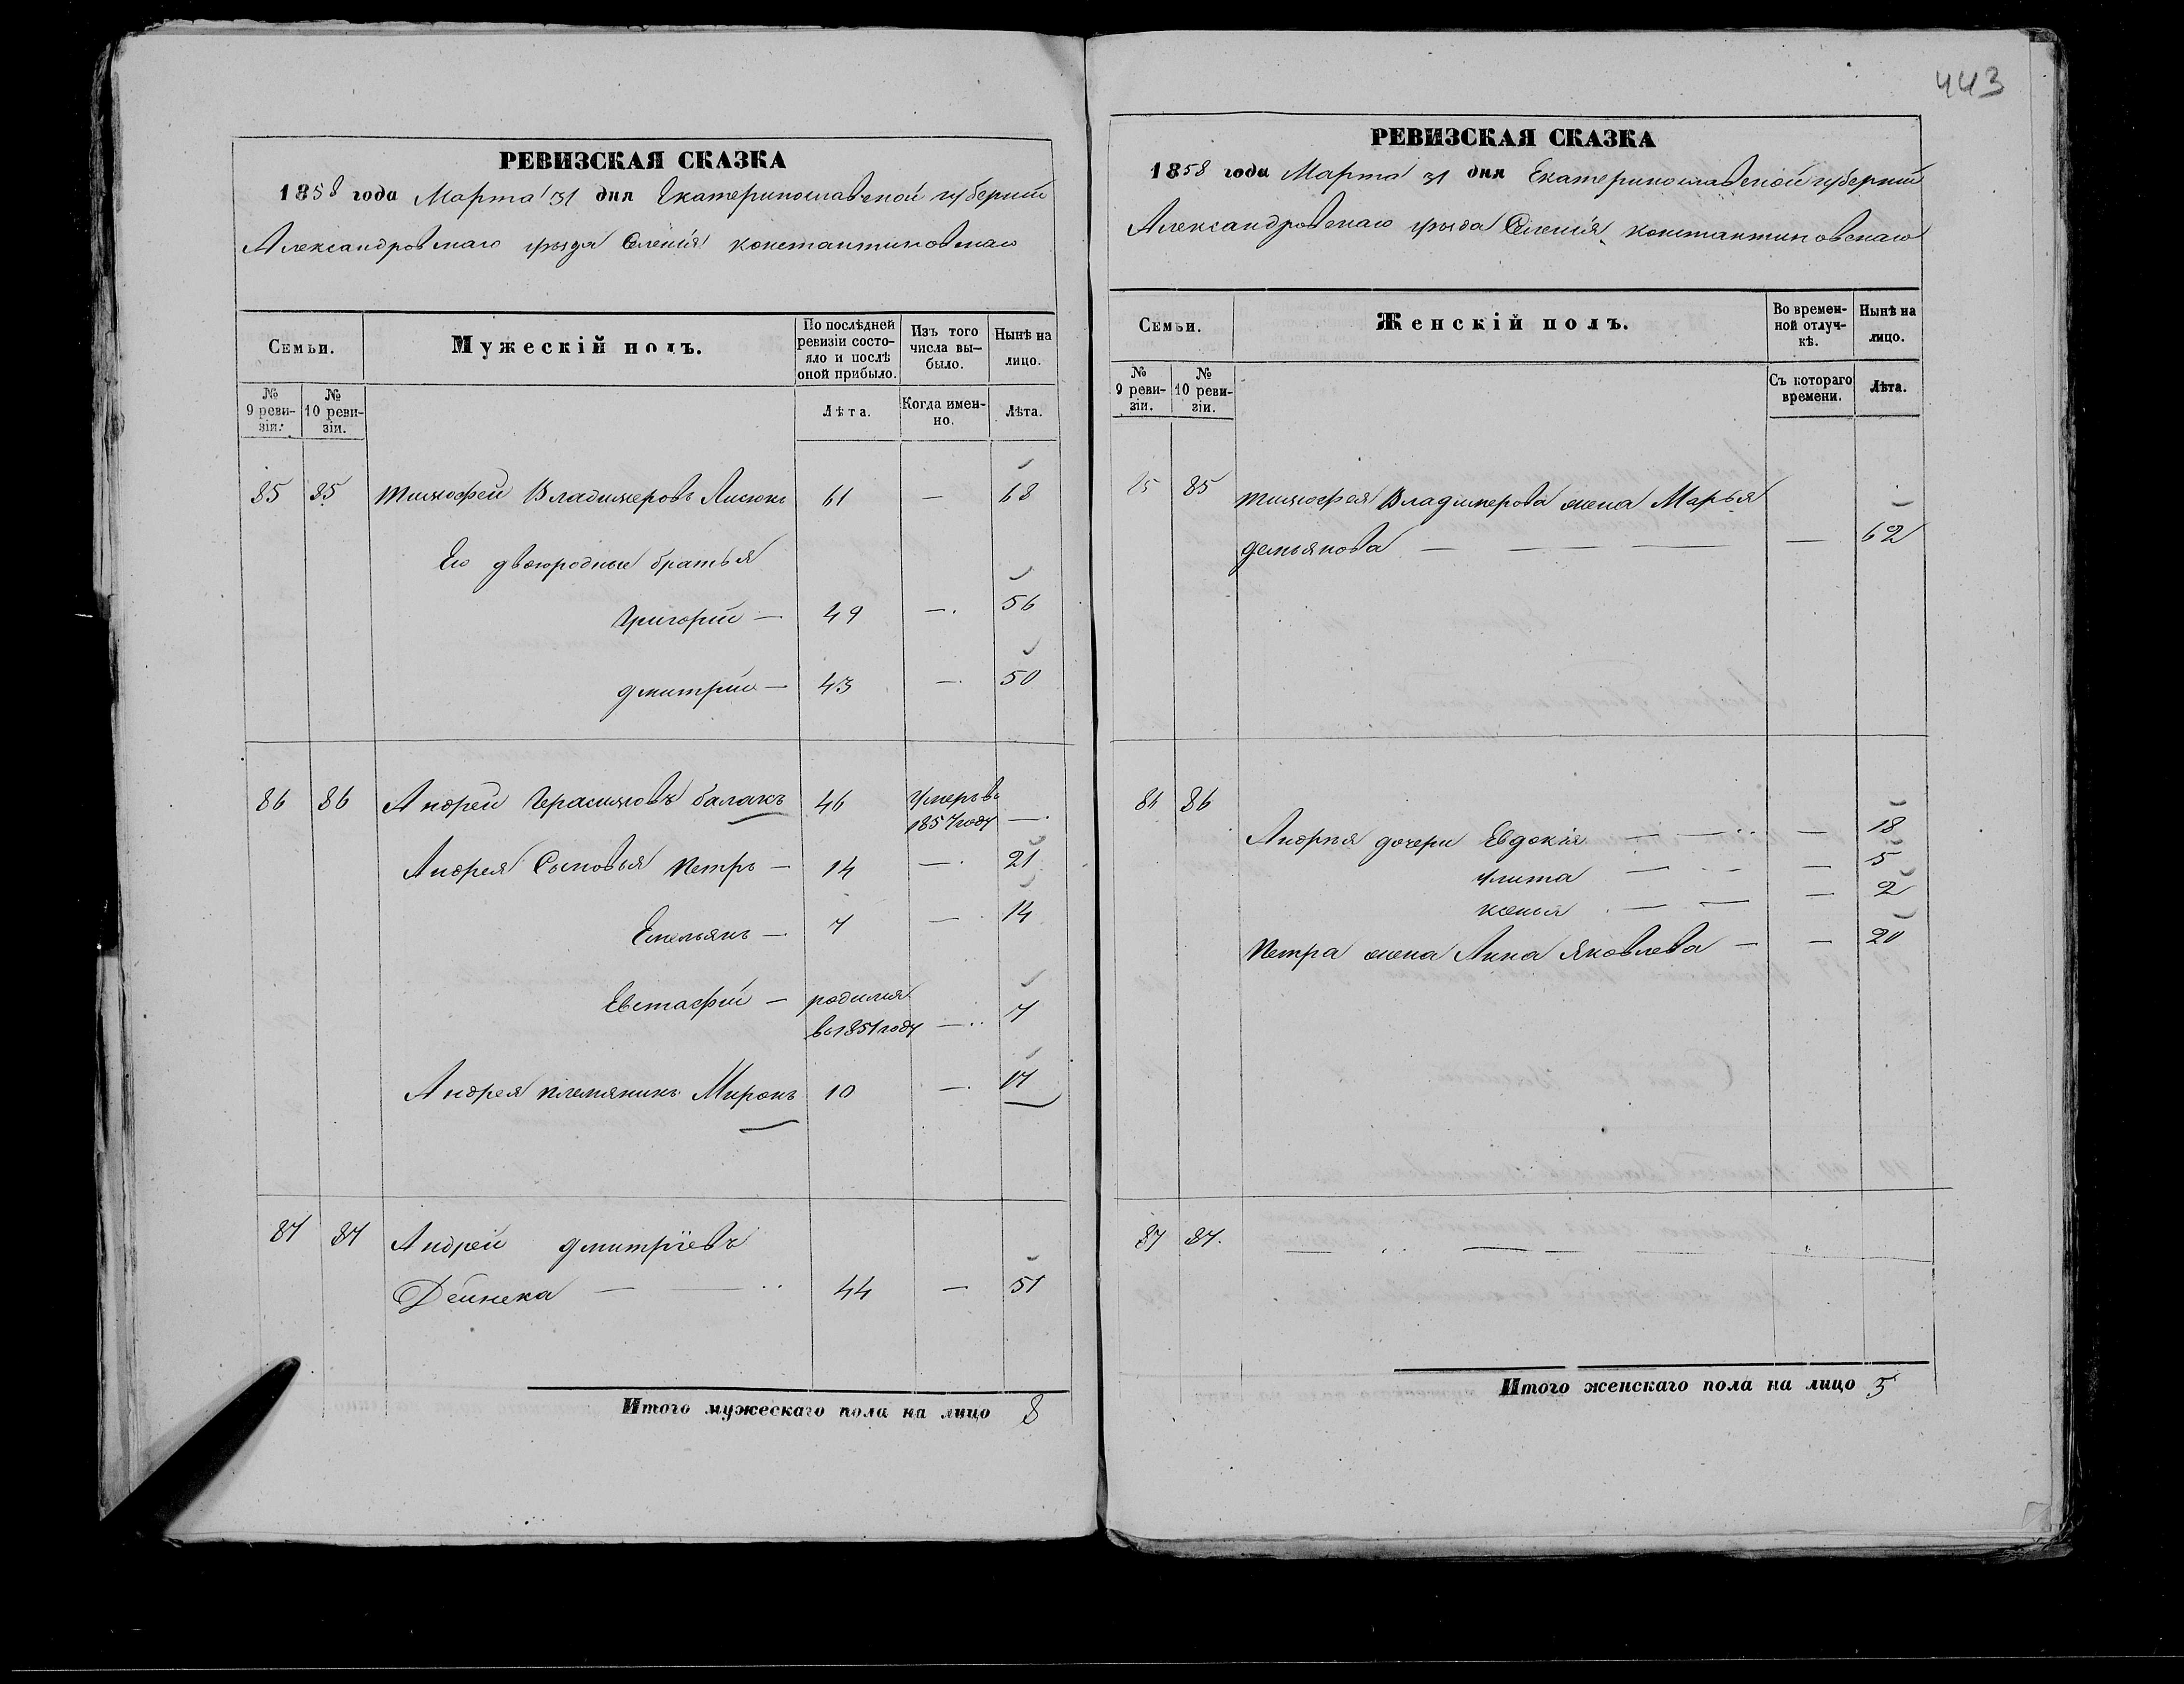 443
РЕВИЗСКАЯ СКАЗКА
1858 года Марта 31 дня Екатеринославской губерніи
Александровскаго уѣзда Селенія Константиновскаго
Семьи.
Мужескій полъ.
По послѣдней ревизіи состояло и послѣ оной прибыло.
Изъ того числа выбыло.
Нынѣ на лицо.
№ 9 ревизіи.
№ 10 ревизіи.
Лѣта.
Когда именно.
Лѣта.
85 85 Тимофей Владимеровъ Лисюкъ 61 — 68
Его двоюродные братья
Григорій — 49 — 56
Дмитрій — 43 — 50
86 86 Андрей Герасимовъ балакъ 46 Умеръ въ 1857 году —
Андрея Сыновья Петръ — 14 — 21
Емельянъ — 7 — 14
Евстафій — родился въ 1851 году — 7
Андрея племяникъ Миронъ 10 — 17
87 87 Андрей Дмитріевъ
Дейнека — 44 — 51
Итого мужескаго пола на лицо 8
РЕВИЗСКАЯ СКАЗКА
1858 года Марта 31 дня Екатеринославской губерніи
Александровскаго уѣзда Селенія Константиновскаго
Семьи.
Женскій полъ.
Во временной отлучкѣ.
Нынѣ на лицо.
№ 9 ревизіи.
№ 10 ревизіи.
Съ котораго времени.
Лѣта.
85 85 Тимофея Владимерова жена Марья
Демьянова — — — — 62
86 86
Андрея дочери Евдокія — — — 18
Улита — — — 5
— — — 2
Петра жена Анна Яковлева — — 20
87 87. — — —
Итого женскаго пола на лицо 5